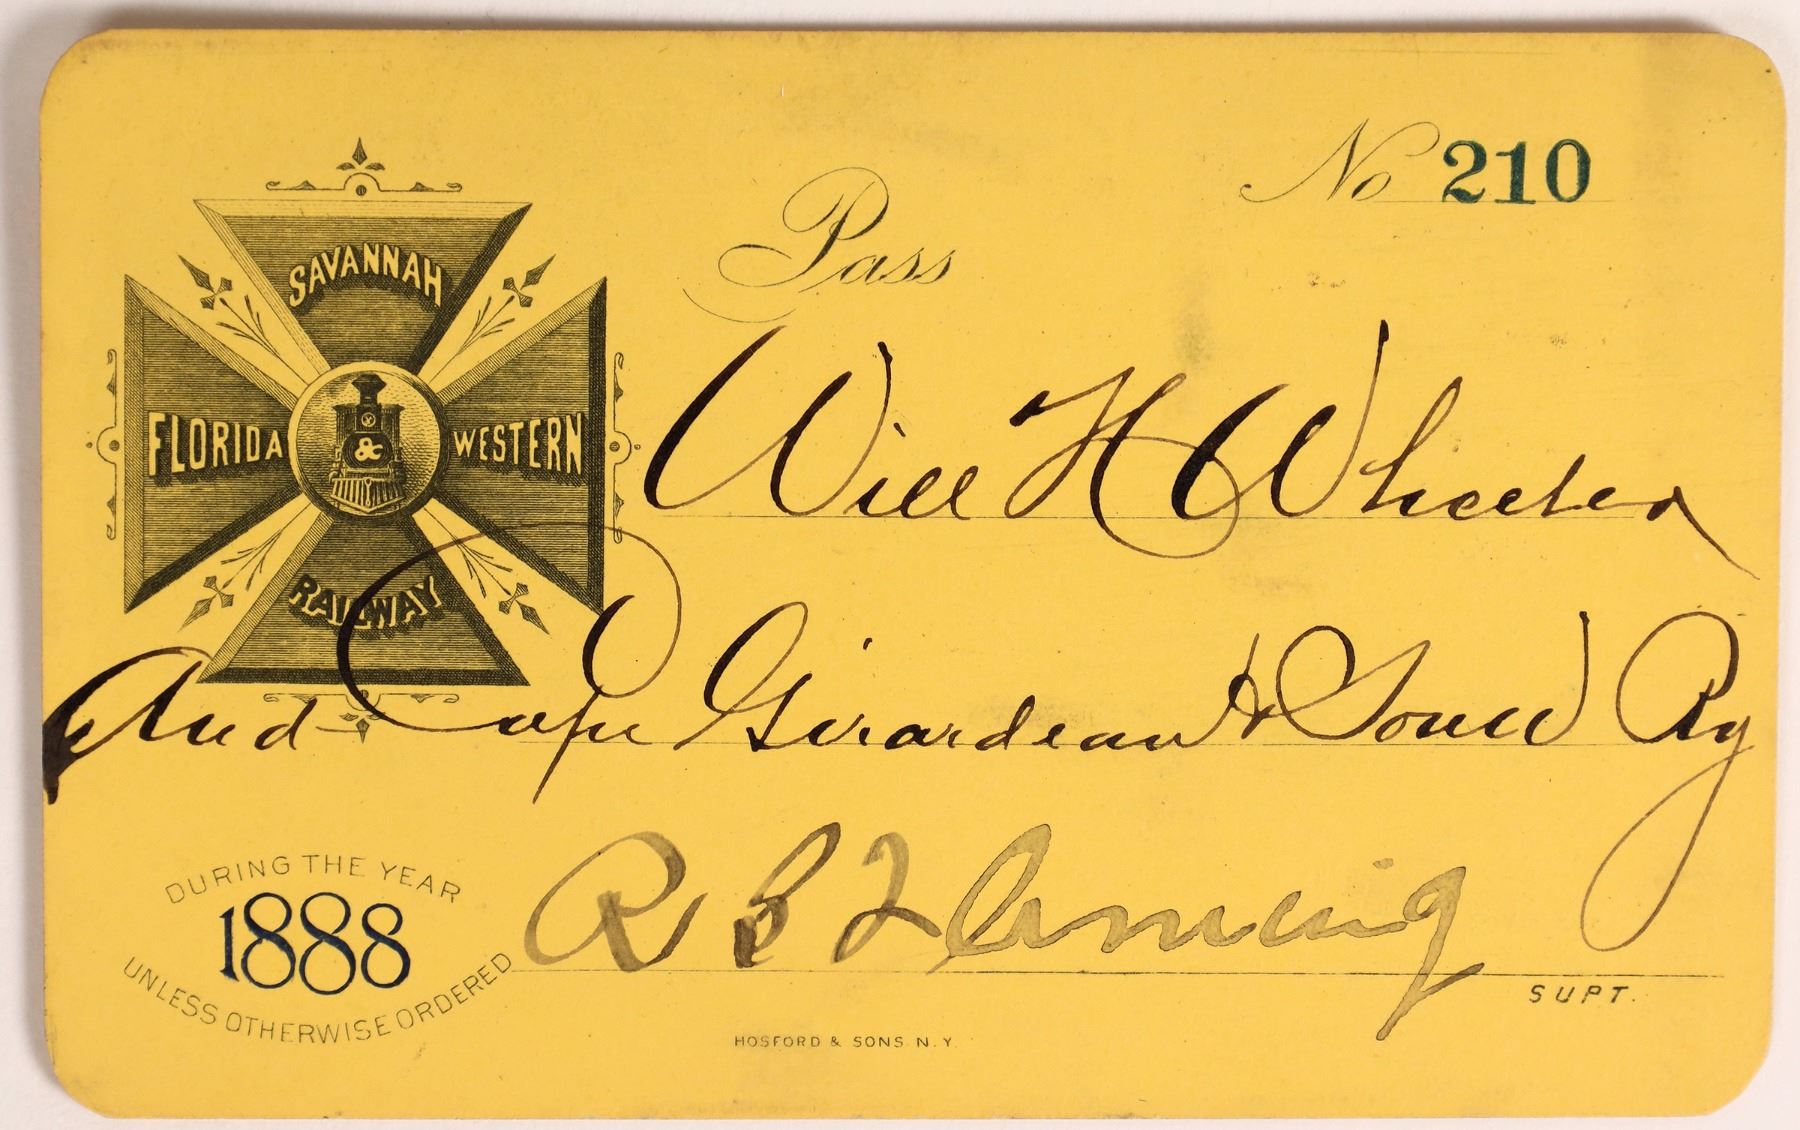 No 210
Pass
SAVANNAH
FLORIDA & WESTERN
RAILWAY
Will H Wheeler
Aud Cape Girardeau & So W Ry
DURING THE YEAR
1888
UNLESS OTHERWISE ORDERED
R B Fleming
SUPT.
HOSFORD & SONS N.Y.